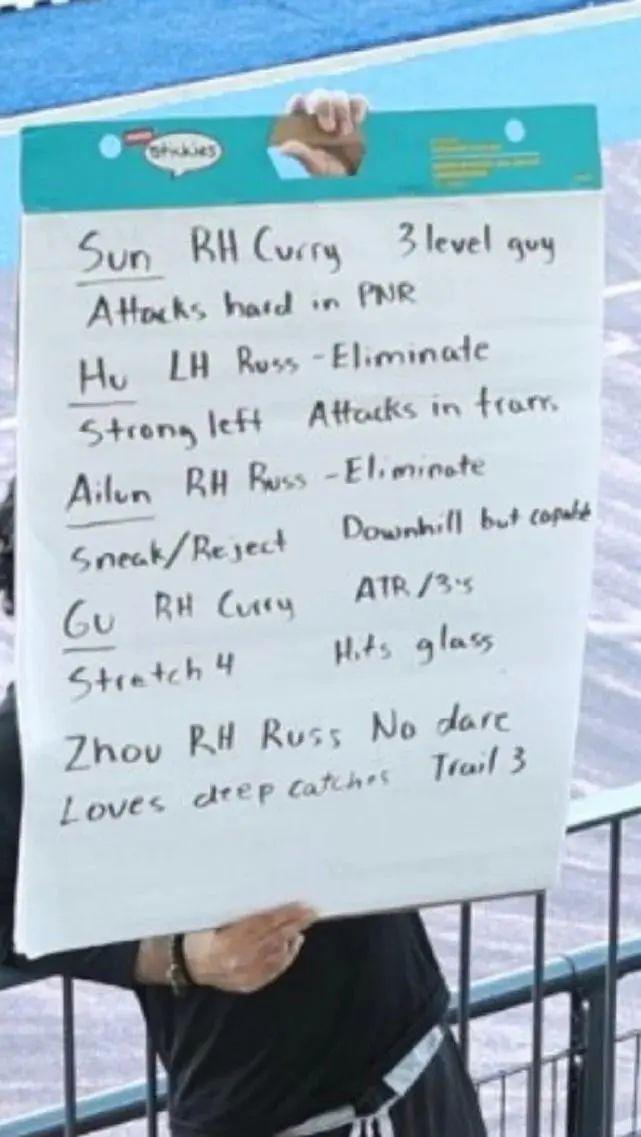 stickies
Sun RH Curry 3 level guy
Attacks hard in PNR
Hu LH Russ - Eliminate
Strong left Attacks in trans.
Ailun RH Russ - Eliminate
Sneak/Reject Downhill but capable
Gu RH Curry ATR/3's
Stretch 4 Hits glass
Zhou RH Russ No dare
Loves deep catches Trail 3